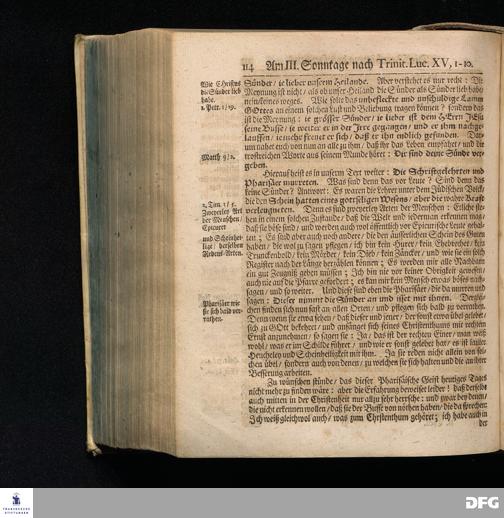 114 Am III. Sonntage nach Trinit. Luc. XV, 1-10.
Wie Christus
die Sünder lieb
habe.
1. Petr. 1/19.
Sünder / ie lieber unserm Heilande. Aber verstehet es nur recht: Die
Meynung ist nicht / als ob unser Heiland die Sünder als Sünder lieb habe /
nein / keines weges. Wie solte das unbefleckte und unschuldige Lamm
GOttes an einem solchen Lust und Beliebung tragen können? sondern das
ist die Meynung: ie grösser Sünder / ie lieber ist dem HErrn JEsu
seine Busse / ie weiter er in der Irre gegangen / und er ihm nachge
lauffen / iemehr freuet er sich / daß er ihn endlich gefunden.
um nahet euch von nun an alle zu ihm / daß ihr das Leben empfahet / und die
trostreichen Worte aus seinem Munde höret: Dir sind deine Sünde ver-
geben.
Matth. 9/2.
Hierauf heist es in unserm Text weiter: Die Schrifftgelehrten und
Pharisäer murreten. Was sind denn das vor Leute? Sind denn das
keine Sünder? Antwort: Es waren die Lehrer unter dem Jüdischen Volck /
die den Schein hatten eines gottseligen Wesens / aber die wahre Krafft
verleugneten. Denn es sind zweyerley Arten der Menschen: Etliche ste-
hen in einem solchen Zustande / daß die Welt und iederman erkennen mag /
daß sie böse sind / und werden auch wol öffentlich vor Epicurische Leute gehal-
ten; Es sind aber auch noch andere / die den äusserlichen Schein des Guten
haben / die wol zu sagen pflegen / ich bin kein Hurer / kein Ehebrecher / kein
Trunckenbold / kein Mörder / kein Dieb / kein Zäncker / und wie sie ein solch
Register nach der Länge herzählen können; Es werden mir alle Nachbarn
ein gut Zeugniß geben müssen; Ich bin nie vor keiner Obrigkeit gewesen /
auch nie auf die Pfarre gefordert; es kan mir kein Mensch etwas böses nach-
sagen / und so weiter. Und diese sind eben die Pharisäer / die da murren und
sagen: Dieser nimmt die Sünder an und isset mit ihnen. Derglei-
chen finden sich nun fast an allen Orten / und pflegen sich bald zu verrathen.
Denn wenn sie etwa sehen / daß dieser und jener / der sonst etwa übel gelebet /
sich zu GOtt bekehret / und anfänget sich seines Christenthums mit rechtem
Ernst anzunehmen / so sagen sie: Ja / das ist der rechten Einer / man weiß
wohl / was er im Schilde führet / und wie er sonst gelebet hat / es ist lauter
Heucheley und Scheinheiligkeit mit ihm. Ja sie reden nicht allein von sol-
chen übel / sondern auch von denen / zu welchen sie sich halten und die an ihrer
Besserung arbeiten.
2. Tim. 3/5.
Zweyerley Art
der Menschen:
Epicurer
und Scheinhei-
lige / derselben
Redens-Arten.
Pharisäer wie
sie sich bald ver-
rathen.
Zu wünschen stünde / das dieser Pharisäische Geist heutiges Tages
nicht mehr zu finden wäre: aber die Erfahrung beweiset leider! daß derselbe
auch mitten in der Christenheit nur allzu sehr herrsche: und zwar bey denen /
die nicht erkennen wollen / daß sie der Busse von nöthen haben / die da sprechen:
Ich weiß gleichwol auch / was zum Christenthum gehöret; ich habe auch in
der
FRANCKESCHE
STIFTUNGEN
DFG